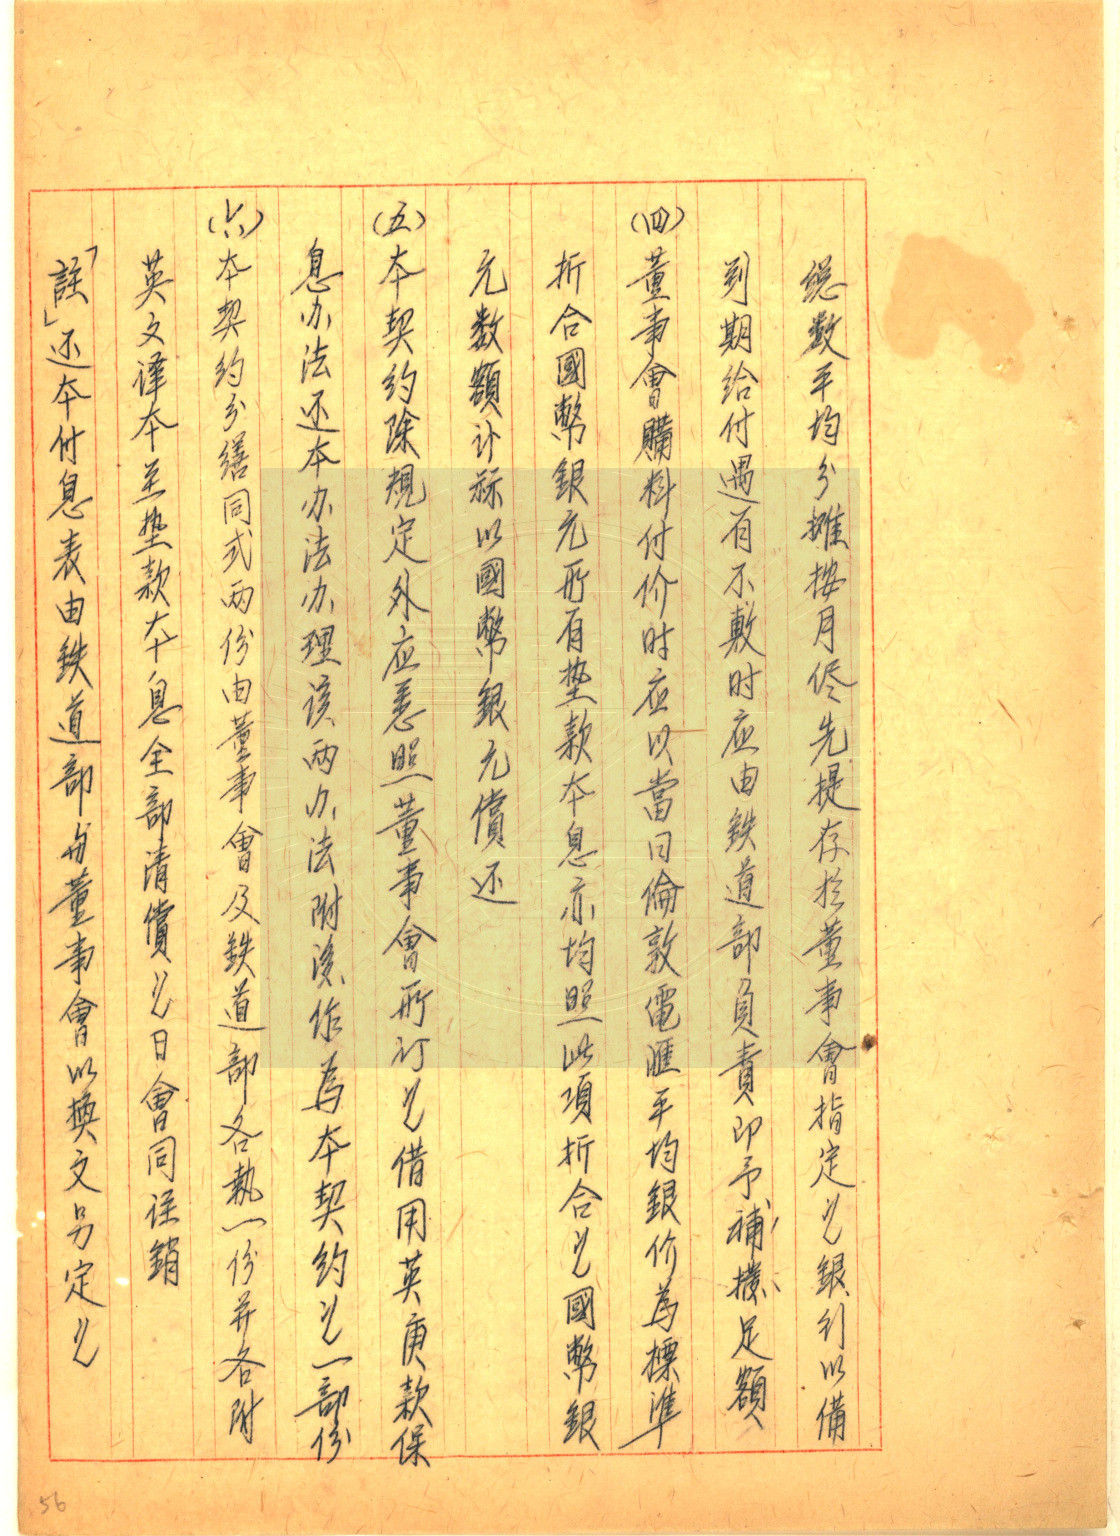 總数平均分攤按月侭先提存於董事會指定之銀行以備
到期給付遇有不敷时应由鉄道部負責即予補撥足額
(四)董事會購料付价时应以當日倫敦電匯平均銀价為標準
折合國幣銀元所有垫款本息亦均照此項折合之國幣銀
元数額计祘以國幣銀元償还
(五)本契约除規定外应悉照董事會所订之借用英庚款保
息办法还本办法办理该两办法附後作為本契约之一部份
(六)本契约分繕同式两份由董事會及鉄道部各執一份并各附
英文译本至垫款本息全部清償之日會同注銷
「註」还本付息表由鉄道部与董事會以換文另定之
56